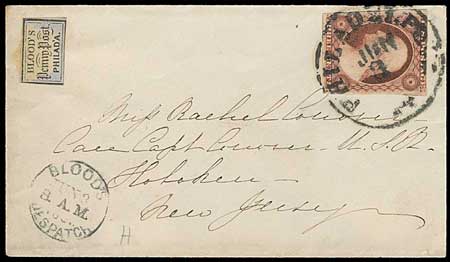 BLOOD'S
Penny Post.
PHILAD'A.
PHILADELPHIA
JUN
3
Miss Rachel
Care Capt U.S.R.
Hoboken
New Jersey
BLOOD'S
8. A.M.
DESPATCH
H